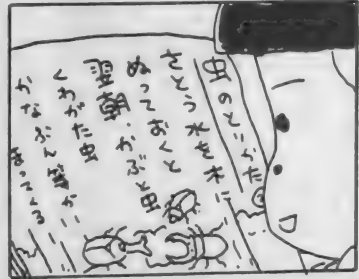 虫のとりかた②
さとう水を木に
ぬっておくと
翌朝、かぶと虫
くわがた虫
かなぶん等が‥
まってくる